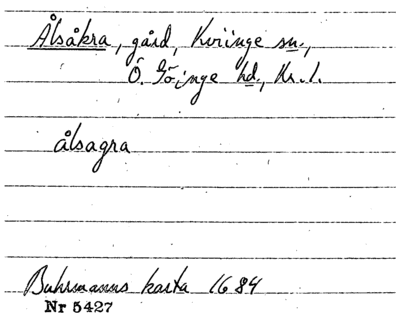 Ålsåkra, gård, Kviinge sn.,
Ö. Göinge hd., Kr. l.
ålsagra
Buhrmanns karta 1684
Nr 5427